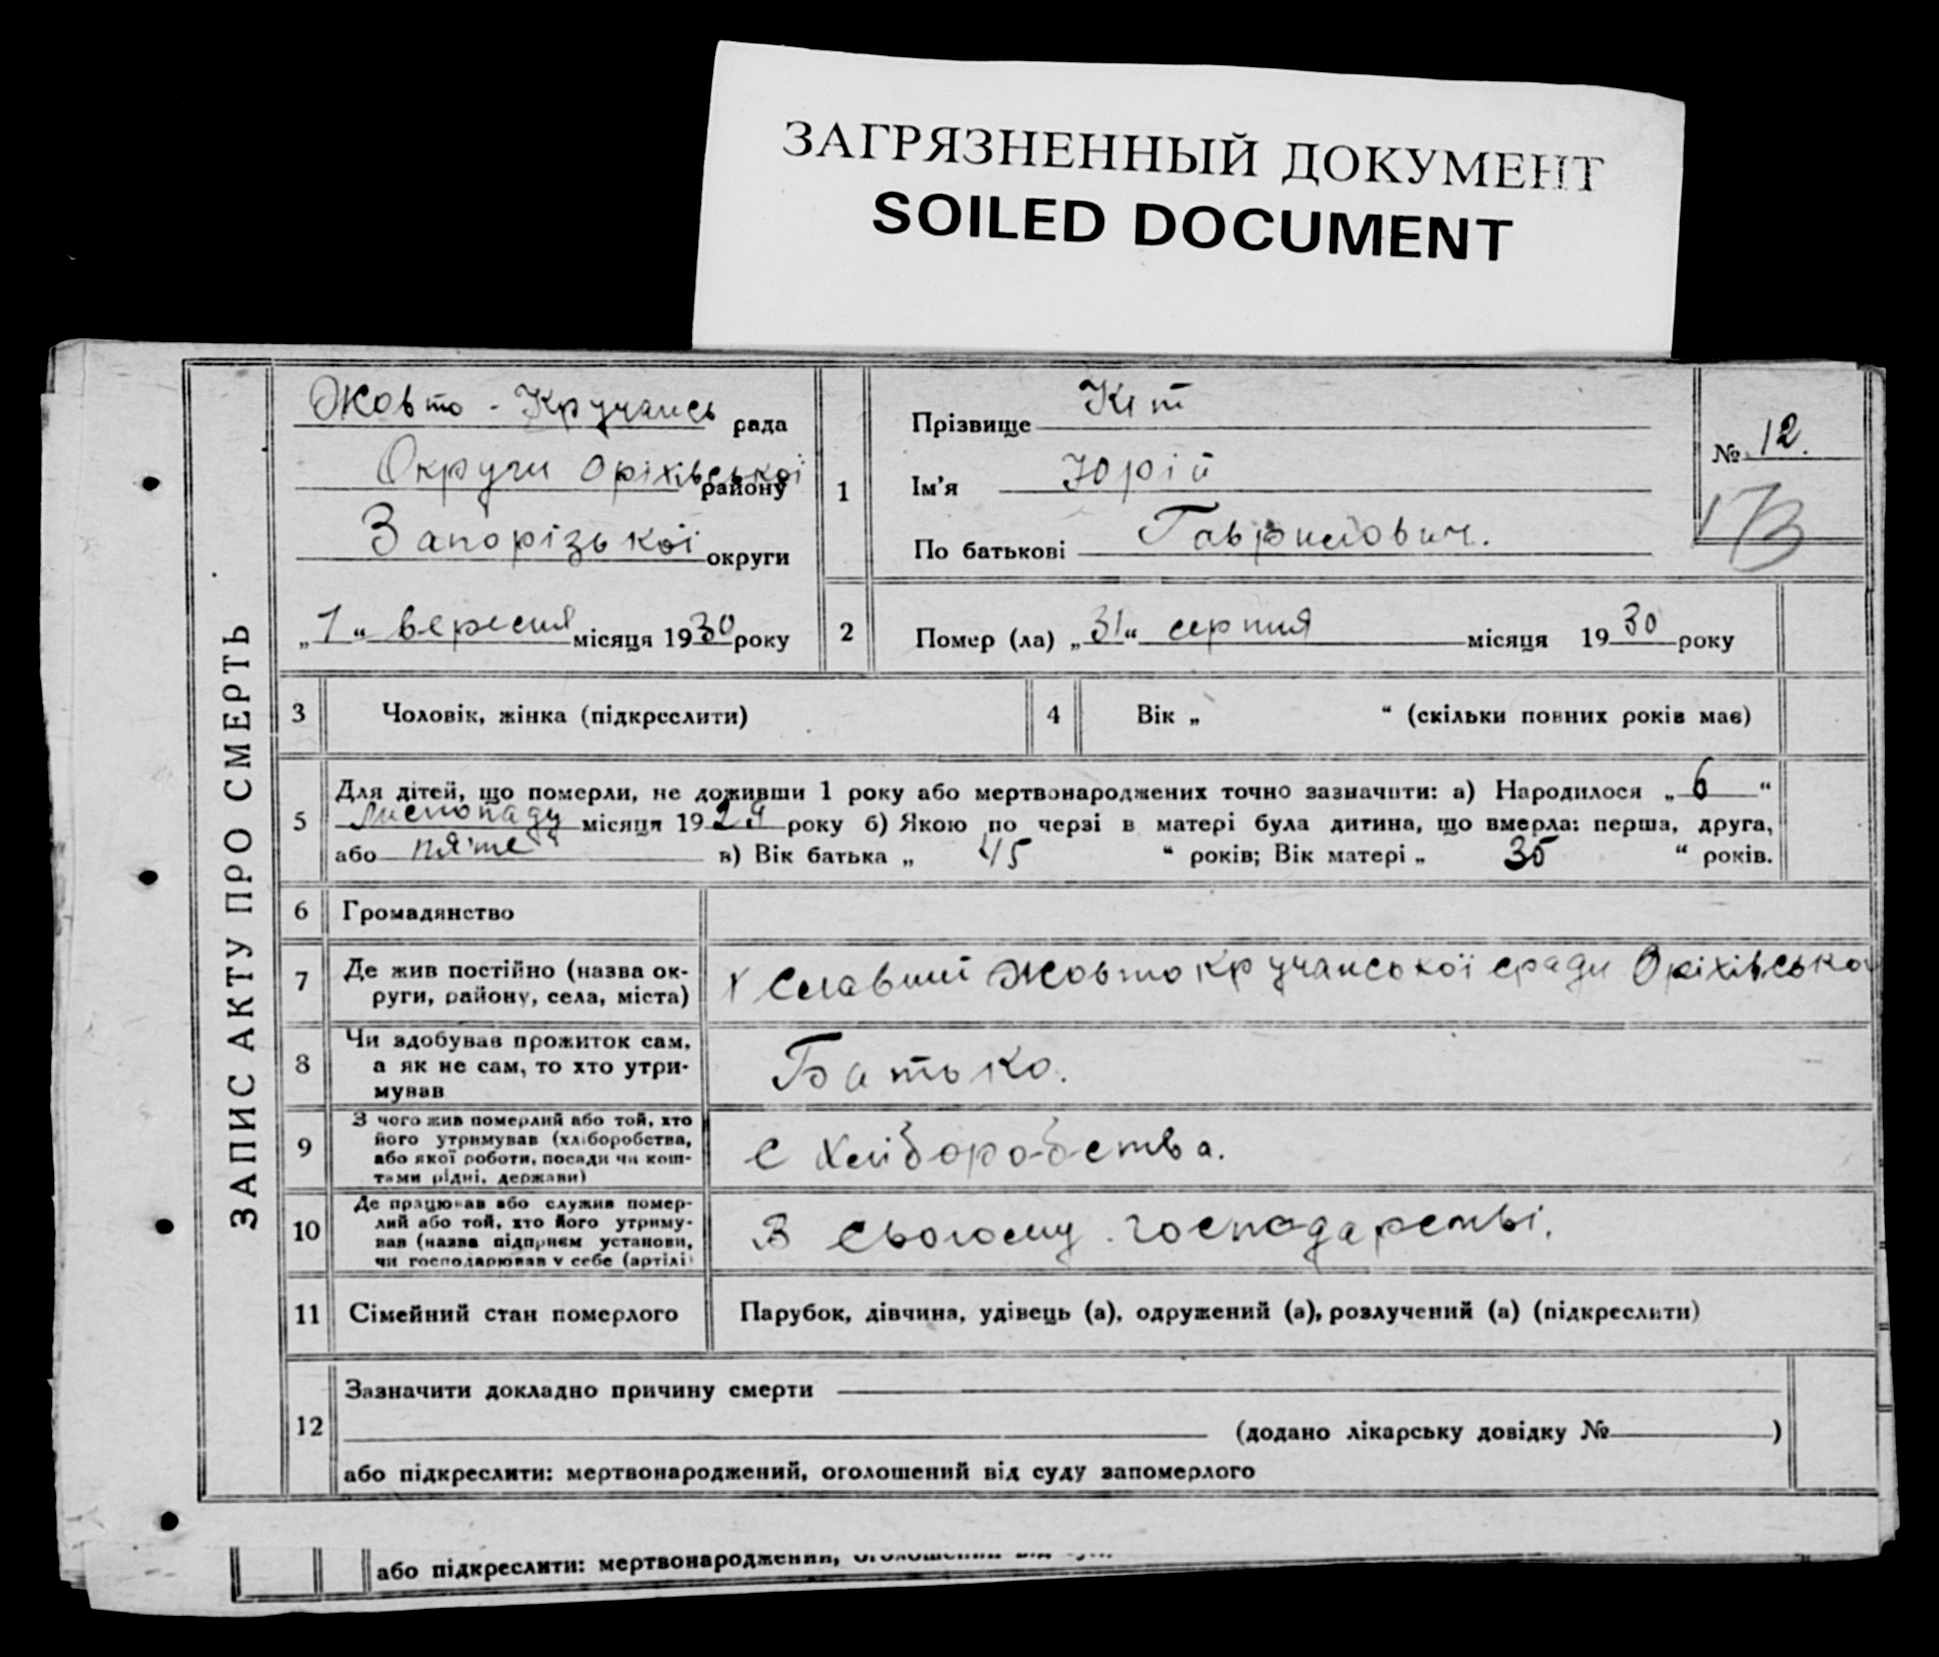 ЗАГРЯЗНЕННЫЙ ДОКУМЕНТ
SOILED DOCUMENT
ЗАПИС АКТУ ПРО СМЕРТЬ
Жовто - Кручансь рада
Округи Оріхівської району
Запорізької округи
„1“ вересня місяця 1930 року
1
Прізвище Кіт
Ім'я Юрій
По батькові Гаврилович.
№ 12.
2 Помер (ла) „31“ серпня місяця 1930 року
3 Чоловік, жінка (підкреслити)
4 Вік „ “ (скільки повних років має)
5 Для дітей, що померли, не доживши 1 року або мертвонароджених точно зазначити: а) Народилося „6“
Листопаду місяця 1929 року б) Якою по черзі в матері була дитина, що вмерла: перша, друга,
або п'яте в) Вік батька „ 45 “ років; Вік матері „ 35 “ років.
6 Громадянство
7 Де жив постійно (назва ок-
руги, району, села, міста)
Жовтокручанської сради Оріхівсько
8 Чи здобував прожиток сам,
а як не сам, то хто утри-
мував
Батько.
9 З чого жив померлий або той, хто
його утримував (хліборобства,
або якої роботи, посади чи кош-
тами рідні, держави)
С Хліборобства.
10 Де працював або служив помер-
лий або той, хто його утриму-
вав (назва підприєм установи,
чи господарював у себе (артілі
В сьогому господарстві.
11 Сімейний стан померлого
Парубок, дівчина, удівець (а), одружений (а), розлучений (а) (підкреслити)
12 Зазначити докладно причину смерти
(додано лікарську довідку № )
або підкреслити: мертвонароджений, оголошений від суду запомерлого
або підкреслити: мертвонароджений,